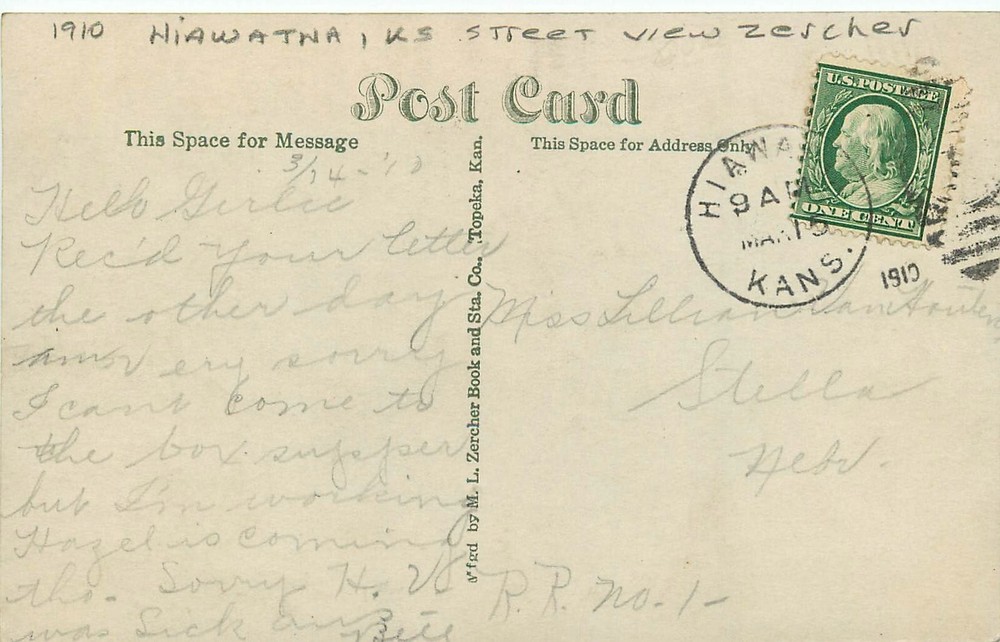 1910 HIAWATHA, KS STREET VIEW ZERCHER
Post Card
This Space for Message
This Space for Address Only
Mfgd by M. L. Zercher Book and Sta. Co., Topeka, Kan.
U.S. POSTAGE
ONE CENT
HIAWA
9 AM
MAR 15
KANS.
1910
3/14-'10
Hello Girlie
Rec'd your letter
the other day
am very sorry
I cant come to
the box supper
but I'm working
Hazel is coming
tho- Sorry H. V.
was sick
Bill
Miss Lillian Van Houten
Stella
Nebr.
R.R. No. 1-